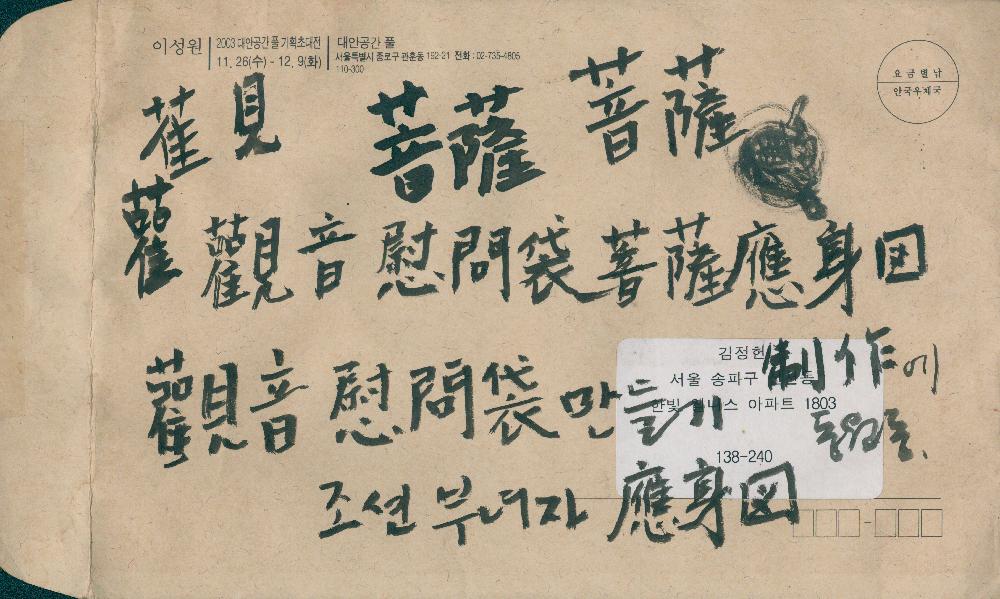 이성원 2003 대안공간 풀 기획초대전 대안공간 풀
11. 26(수) - 12. 9(화) 서울특별시 종로구 관훈동 192-21 전화 : 02-735-4805
110-300
요금별납
안국우체국
雚 見 菩薩 菩薩
雚 觀音 慰問袋 菩薩 應身図
김정헌
서울 송파구
아파트 1803
138-240
觀音 慰問袋 만들기 制作에
조선 부녀자 應身図